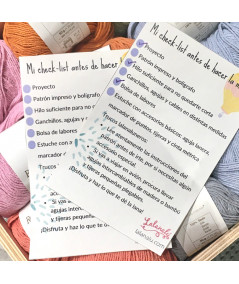 Mi check-list antes de hacer la
Proyecto
Patrón impreso y bolígrafo
Hilo suficiente para no quedarte corta
Ganchillos, agujas y cables en distintas medidas
Bolsa de labores
Estuche con accesorios básicos: aguja lanera,
marcador de puntos, tijeras y cinta métrica
Trucos
Lee atentamente las instrucciones del
Si vas a viajar en avión, procura llevar
agujas intercambiables de madera o bambú
y tijeras pequeñas plegables.
¡Disfruta y haz lo que te dé la lana!
lalanalu.com
Mi check-list antes de hacer
Proyecto
Patrón impreso y bolígrafo
Hilo suficiente para no
Ganchillos, agujas y
Bolsa de labores
Estuche con
marcador de
Trucos
Lee
Si vas a
agujas
y tijeras
¡Disfruta y haz lo